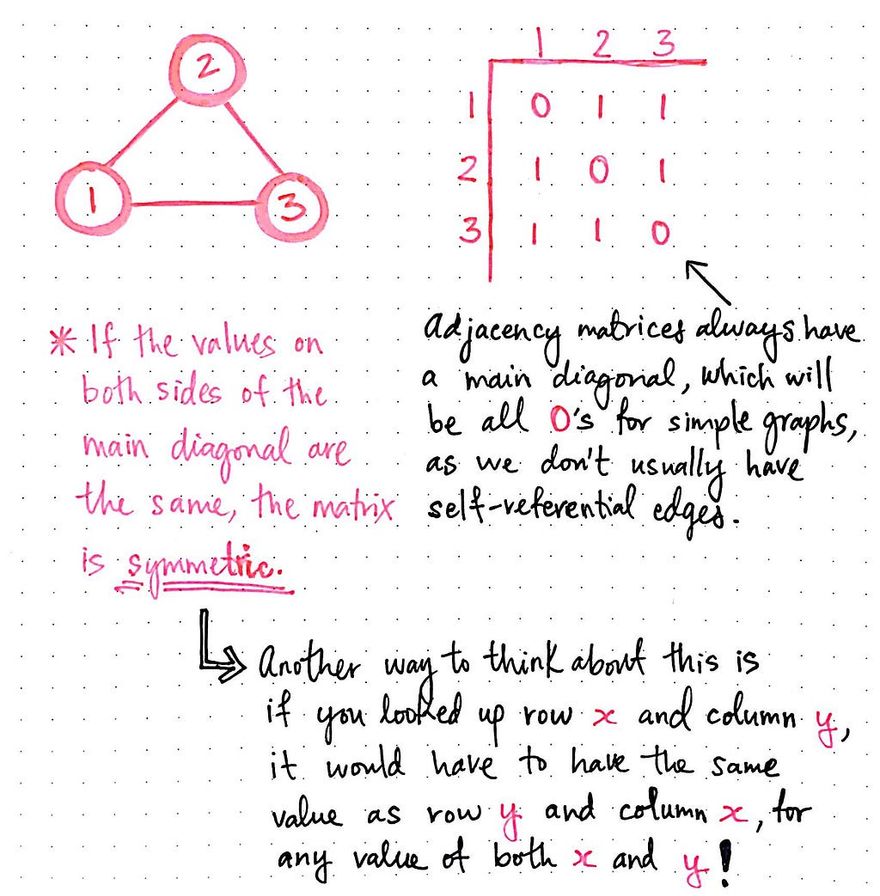 2
1
3
1 2 3
1 0 1 1
2 1 0 1
3 1 1 0
* If the values on
both sides of the
main diagonal are
the same, the matrix
is symmetric.
Adjacency matrices always have
a main diagonal, which will
be all 0's for simple graphs,
as we don't usually have
self-referential edges.
Another way to think about this is
if you looked up row x and column y,
it would have to have the same
value as row y and column x, for
any value of both x and y!